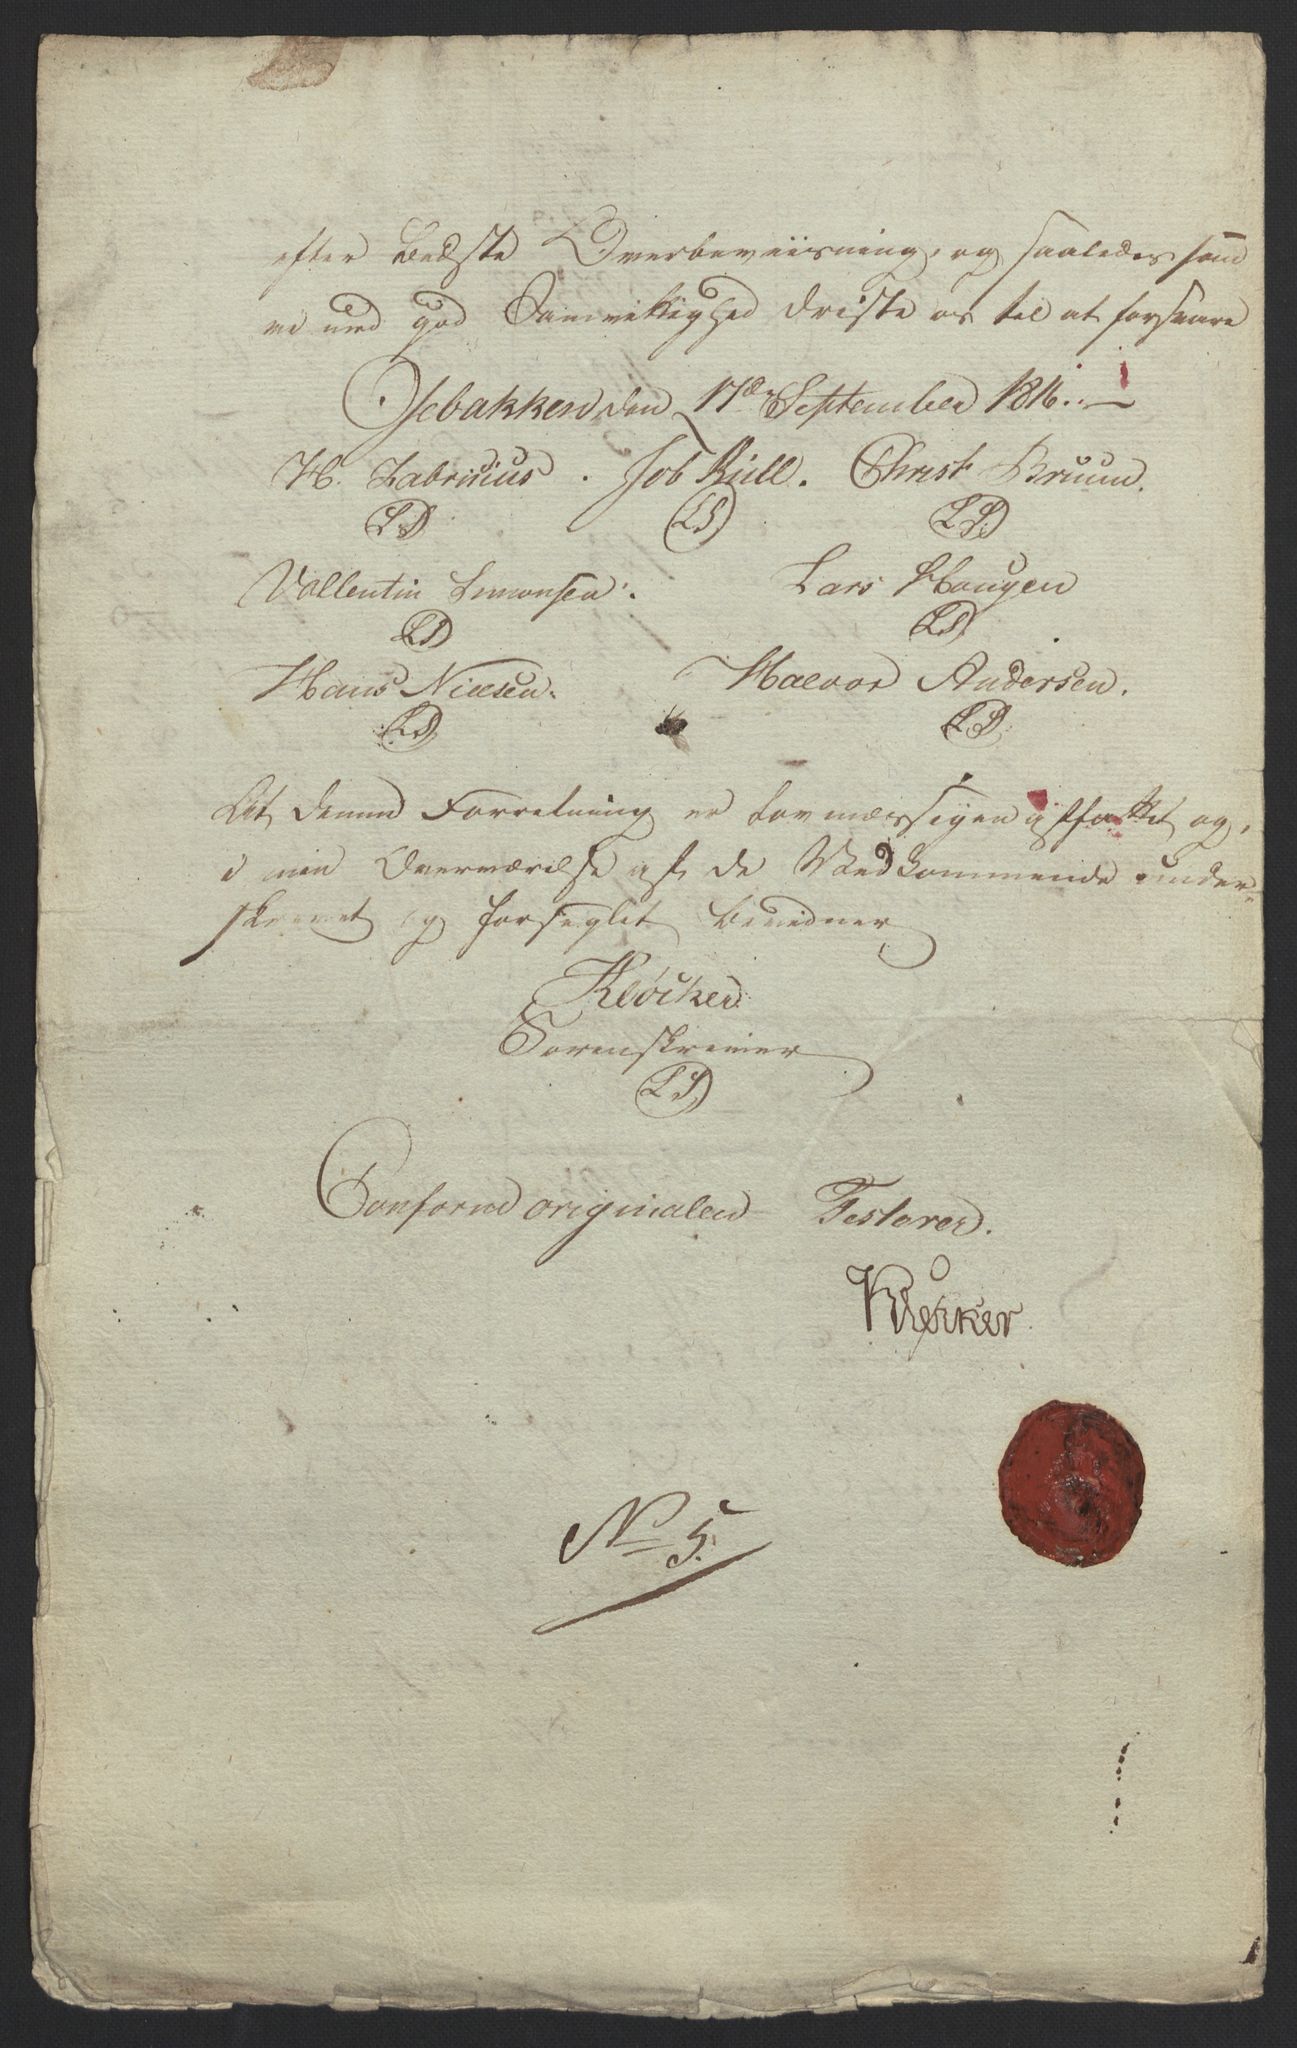 efter bedste Overbeviisning, og saaledes som
vi med god Samvittighed driste os til at forsvare
Isebakken den 17de September 1816. —
H. Fabritius. Job Kiill. Christ Bruun.
LS LS LS
Vallentin Simonsen. Lars Haugen
LS LS
Hans Nielsen. Halvor Andersen.
LS LS
At denne Forretning er Lovmæssigen afholdt og,
i min Overværelse af de Vedkommende under-
skrevet og forseglet bevidner
Kløcker
Sorenskriver
LS
Conform originalen Testerer.
Kløcker
No 5.